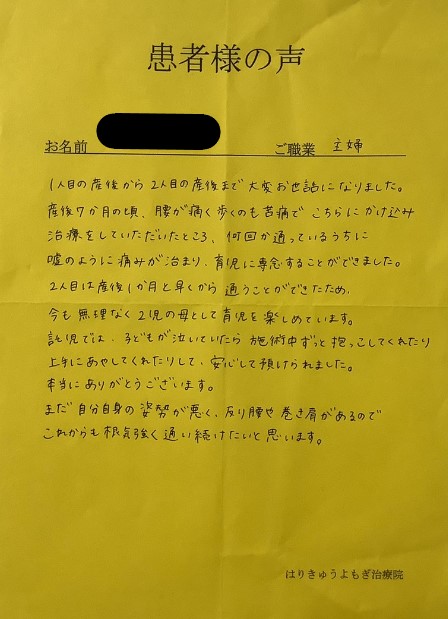 患者様の声
お名前 ご職業 主婦
1人目の産後から2人目の産後まで大変お世話になりました。
産後7か月の頃、腰が痛く歩くのも苦痛でこちらにかけ込み
治療をしていただいたところ、何回か通っているうちに
嘘のように痛みが治まり、育児に専念することができました。
2人目は産後1か月と早くから通うことができたため、
今も無理なく2児の母として育児を楽しめています。
託児では、子どもが泣いていたら施術中ずっと抱っこしてくれたり
上手にあやしてくれたりして、安心して預けられました。
本当にありがとうございます。
まだ自分自身の姿勢が悪く、反り腰や巻き肩があるので
これからも根気強く通い続けたいと思います。
はりきゅうよもぎ治療院